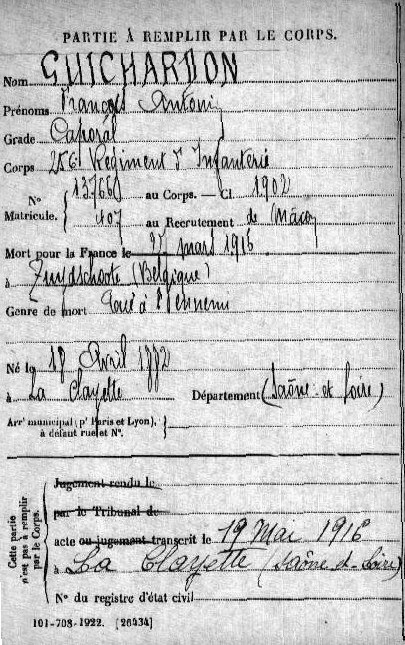 PARTIE À REMPLIR PAR LE CORPS.
Nom GUICHARDON
Prénoms François Antoni
Grade Caporal
Corps 256e Régiment d'Infanterie
N° Matricule. { 13766 au Corps. — Cl. 1902
407 au Recrutement de Mâcon
Mort pour la France le 27 mars 1916
à Zuydschoote (Belgique)
Genre de mort Tué à l'ennemi
Né le 18 Avril 1882
à La Clayette Département (Saône et Loire)
Arrt municipal (pr Paris et Lyon), à défaut rue et N°. }
Cette partie n'est pas à remplir par le Corps.
Jugement rendu le
par le Tribunal de
acte ou jugement transcrit le 19 Mai 1916
à La Clayette (Saône-et-Loire)
N° du registre d'état civil
101-708-1922. [26434]